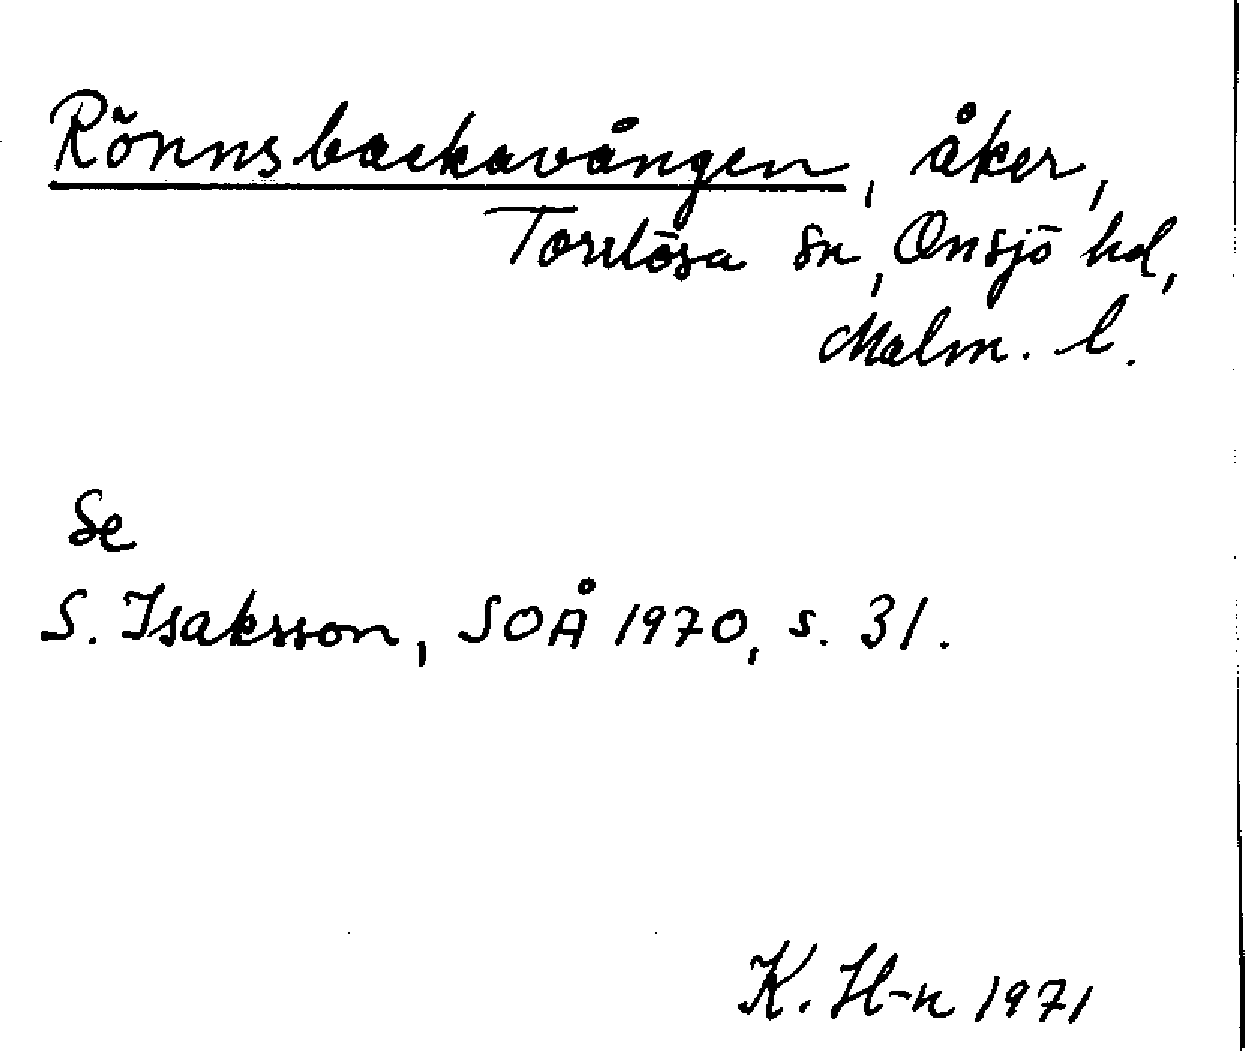 Rönnsbackavången, åker,
Torrlösa sn, Onsjö hd,
Malm. l.
Se
S. Isaksson, SOÅ 1970, s. 31.
K. H-n 1971